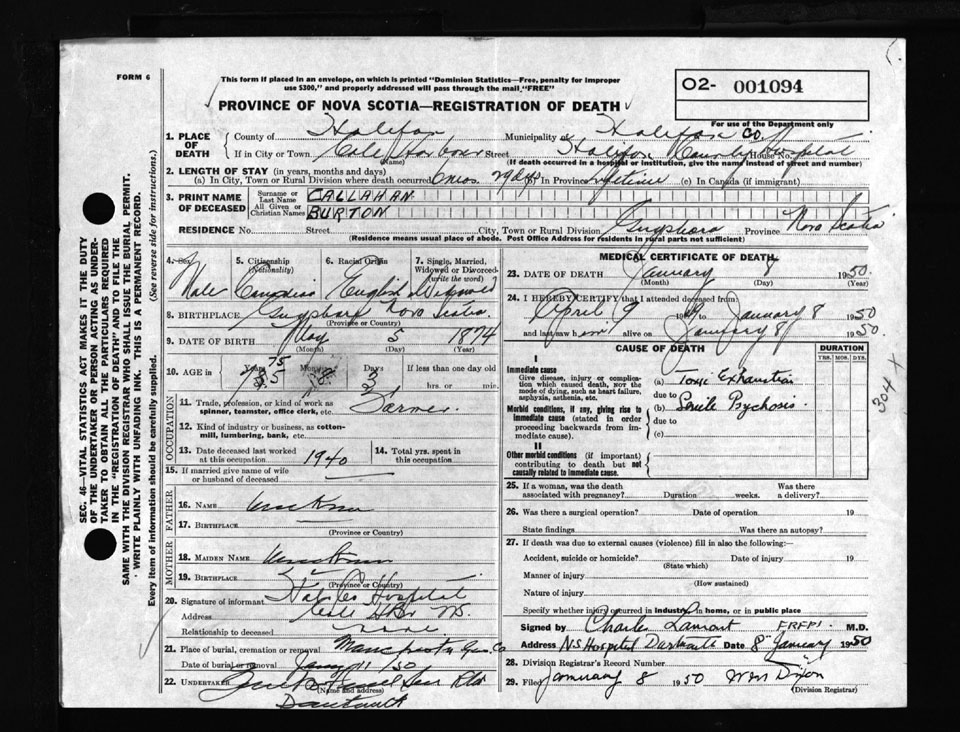 FORM 6
This form if placed in an envelope, on which is printed "Dominion Statistics—Free, penalty for improper
use $300," and properly addressed will pass through the mail, "FREE"
PROVINCE OF NOVA SCOTIA—REGISTRATION OF DEATH
O2- 001094
For use of the Department only
1. PLACE OF DEATH
County of Halifax Municipality of Halifax Co.
If in City or Town Cole Harbour Street Halifax County Hospital House No.
(Name) (If death occurred in a hospital or institution, give the name instead of street and number)
2. LENGTH OF STAY (in years, months and days)
(a) In City, Town or Rural Division where death occurred 8 mos. 29 dys (b) In Province Lifetime (c) In Canada (if immigrant)
3. PRINT NAME OF DECEASED
Surname or Last Name CALLAHAN
All Given or Christian Names BURTON
RESIDENCE No. Street City, Town or Rural Division Guysboro Province Nova Scotia
(Residence means usual place of abode. Post Office Address for residents in rural parts not sufficient)
4. Sex 5. Citizenship (Nationality) 6. Racial Origin 7. Single, Married, Widowed or Divorced (write the word)
Male Canadian English Widowed
8. BIRTHPLACE Guysboro Nova Scotia
(Province or Country)
9. DATE OF BIRTH May 5 1874
(Month) (Day) (Year)
10. AGE in Years Months Days If less than one day old
75 3 hrs. or min.
OCCUPATION
11. Trade, profession, or kind of work as spinner, teamster, office clerk, etc. Farmer.
12. Kind of industry or business, as cotton-mill, lumbering, bank, etc.
13. Date deceased last worked at this occupation 1940 14. Total yrs. spent in this occupation
15. If married give name of wife or husband of deceased
FATHER
16. NAME Unknown
17. BIRTHPLACE
(Province or Country)
MOTHER
18. MAIDEN NAME Unknown
19. BIRTHPLACE
(Province or Country)
20. Signature of informant Hospital
Address Cole Hbr NS.
Relationship to deceased None.
21. Place of burial, cremation or removal Manchester Guys. Co
Date of burial or removal Jany 11/50
22. UNDERTAKER
(Name and address)
Dartmouth
MEDICAL CERTIFICATE OF DEATH
23. DATE OF DEATH January 8 1950.
(Month) (Day) (Year)
24. I HEREBY CERTIFY that I attended deceased from:
April 9 1949 to January 8 1950
and last saw him alive on January 8 1950.
CAUSE OF DEATH DURATION
YRS. MOS. DYS.
I
Immediate cause
Give disease, injury or complication which caused death, not the mode of dying, such as heart failure, asphyxia, asthenia, etc.
(a) Toxic Exhaustion
due to
Morbid conditions, if any, giving rise to immediate cause (stated in order proceeding backwards from immediate cause).
(b) Senile Psychosis.
due to
(c)
II
Other morbid conditions (if important) contributing to death but not causally related to immediate cause.
304 +
25. If a woman, was the death associated with pregnancy? Duration weeks. Was there a delivery?
26. Was there a surgical operation? Date of operation 19
State findings Was there an autopsy?
27. If death was due to external causes (violence) fill in also the following:
Accident, suicide or homicide? Date of injury 19
(State which)
Manner of injury
(How sustained)
Nature of injury
Specify whether injury occurred in industry, in home, or in public place
Signed by Charles Lamont FRFPS. M.D.
Address NS Hospital Dartmouth Date 8th January 1950
28. Division Registrar's Record Number
29. Filed January 8 1950 Wm Dixon
(Division Registrar)
SEC. 46—VITAL STATISTICS ACT MAKES IT THE DUTY
OF THE UNDERTAKER OR PERSON ACTING AS UNDER-
TAKER TO OBTAIN ALL THE PARTICULARS REQUIRED
IN THE "REGISTRATION OF DEATH" AND TO FILE THE
SAME WITH THE DIVISION REGISTRAR WHO SHALL ISSUE THE BURIAL PERMIT.
WRITE PLAINLY WITH UNFADING INK. THIS IS A PERMANENT RECORD.
Every item of information should be carefully supplied. (See reverse side for instructions.)